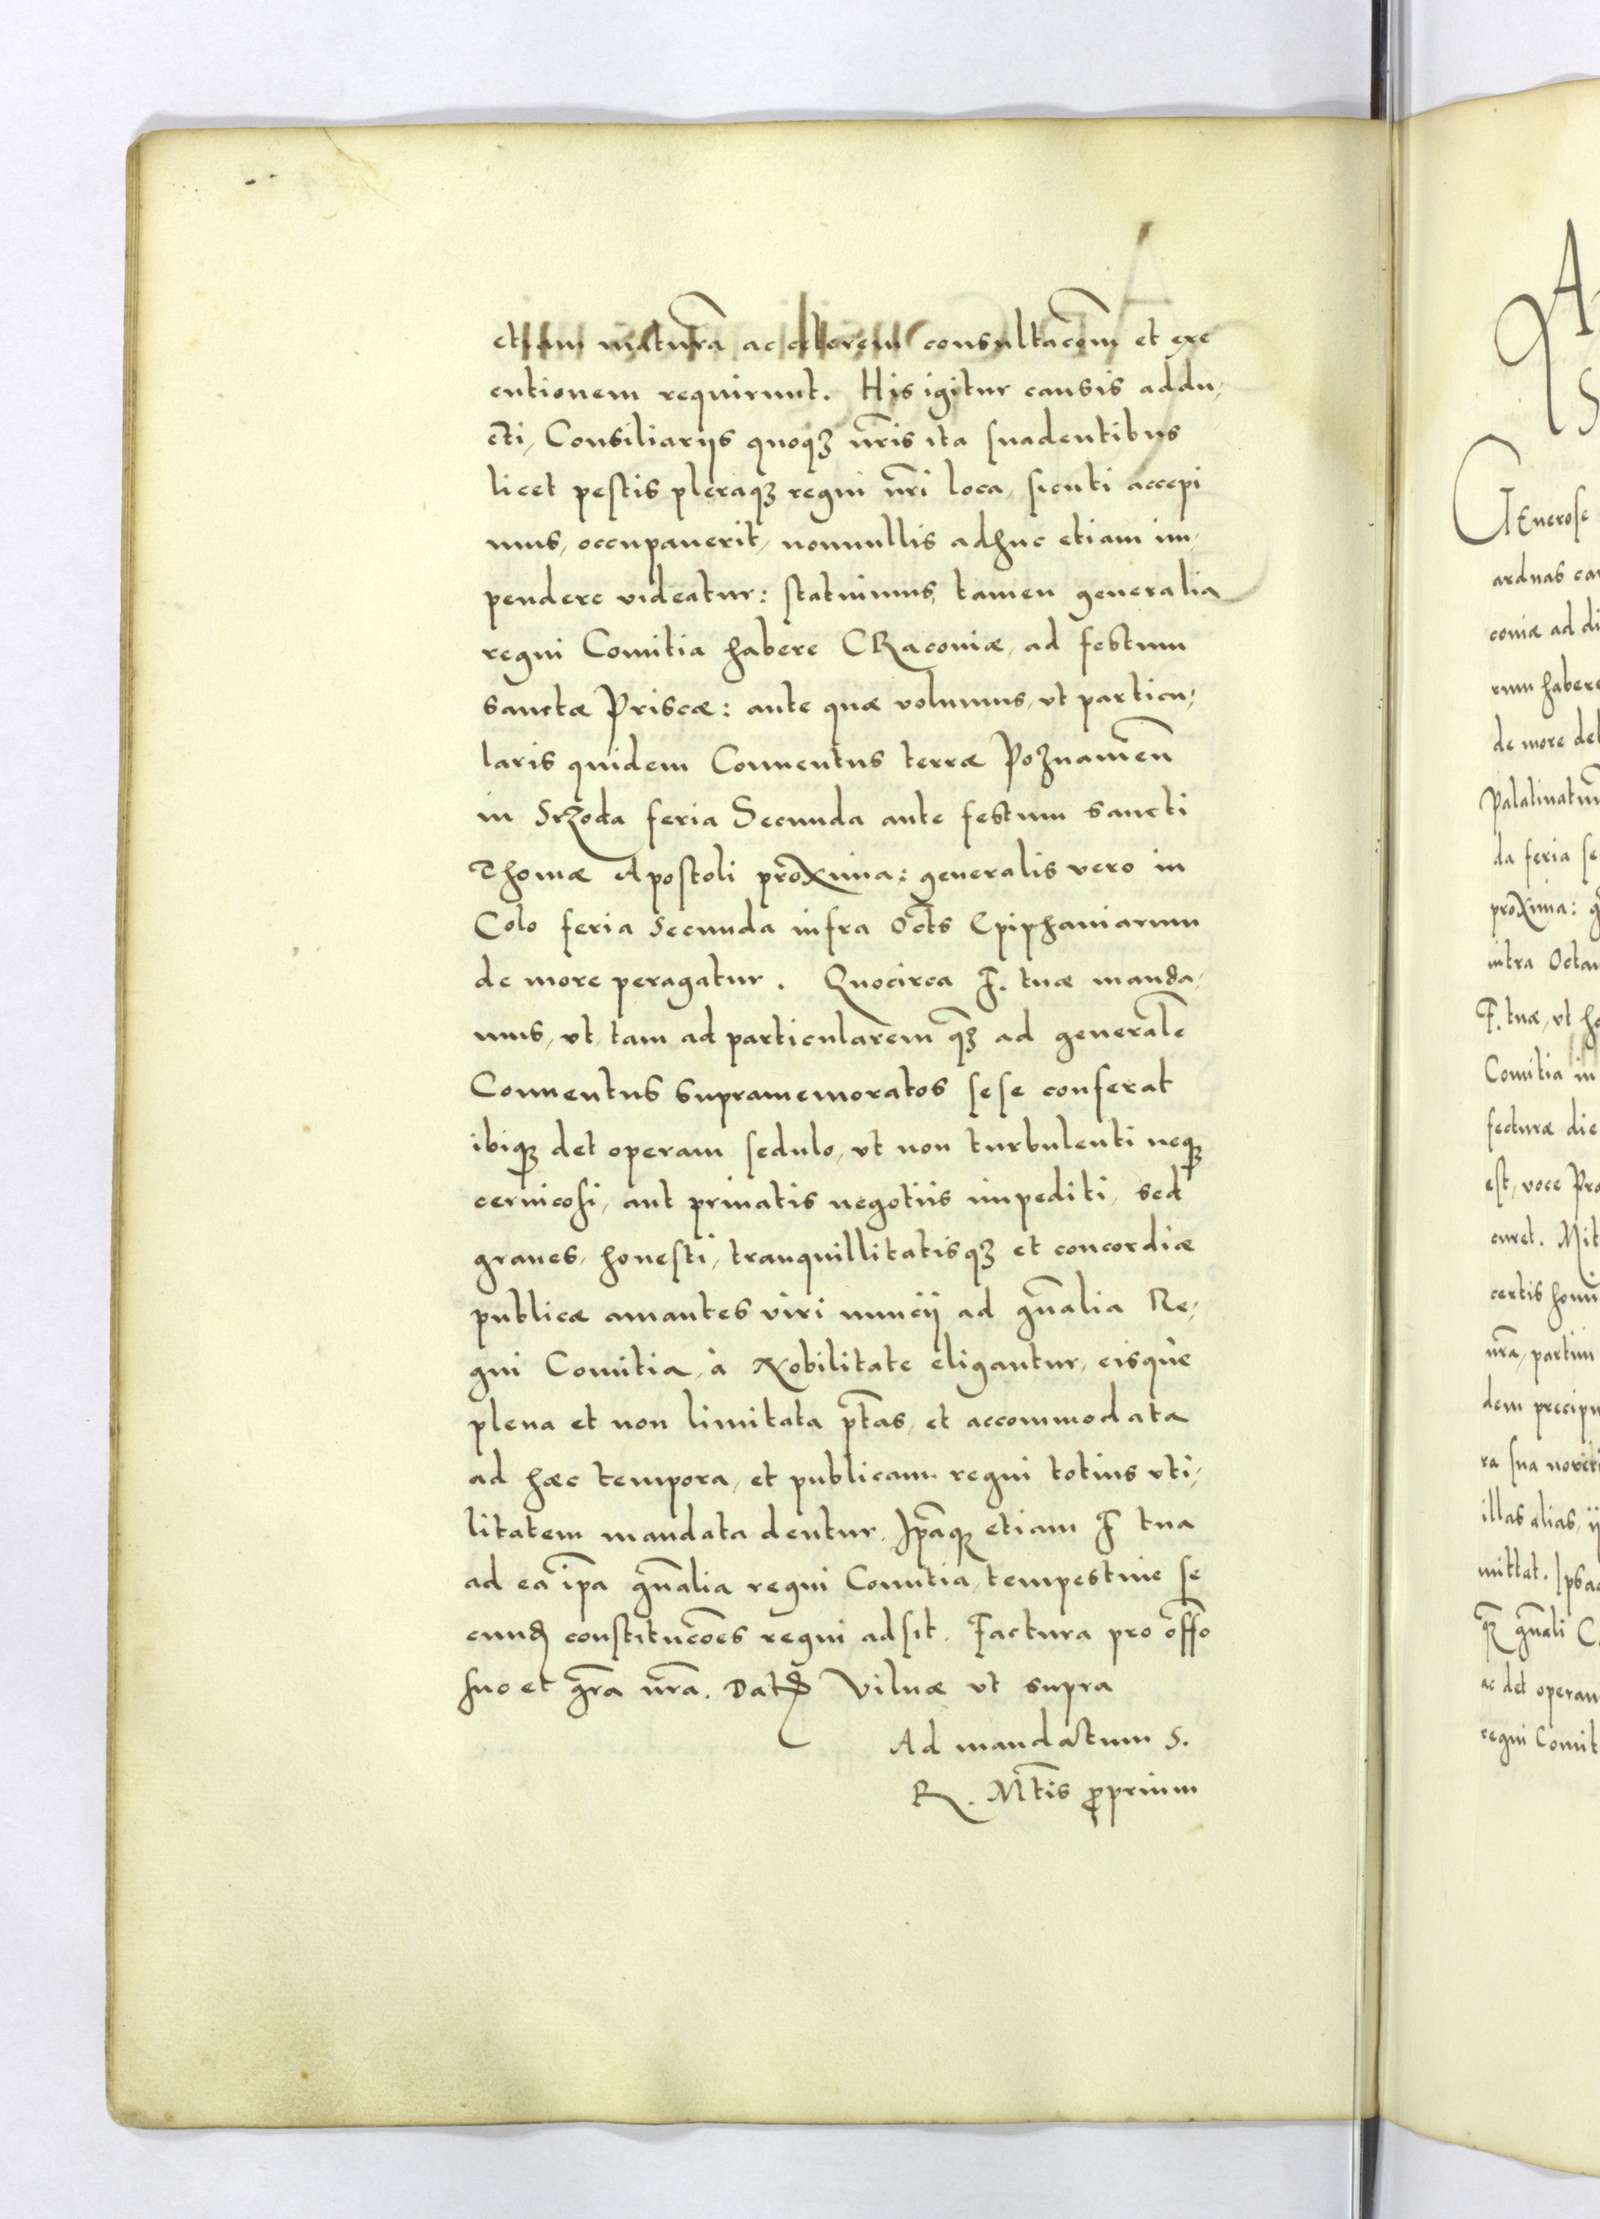 etiam maturã ac celerem consultacõm et exe
cutionem requirunt. His igitur causis addu,
cti, Consiliarijs quoqȝ nr̃is ita suadentibus
licet pestis pleraqȝ regni nr̃i loca, sicuti accepi
mus, occupauerit, nonnullis adhuc etiam im,
pendere videatur: statuimus, tamen generalia
regni Comitia habere CRacouiæ, ad festum
sanctæ Priscæ: ante quæ volumus, vt particu,
laris quidem Conuentus terræ Poznanieñ
in Srzoda feria Secunda ante festum sancti
Thomæ Apostoli proxima: generalis vero in
Colo feria Secunda infra Oct̃s Epiphaniarum
de more peragatur. Quocirca F. tuæ manda,
mus, vt tam ad particularem qȝ̃ ad generalẽ
Conuentus supramemoratos sese conferat
ibiqȝ det operam sedulo, vt non turbulenti neqȝ
ceruicosi, aut priuatis negotiis impediti, sed
graues, honesti, tranquillitatisqȝ et concordiæ
publicæ amantes viri nuncij ad gñalia Re,
gni Comitia, à Nobilitate eligantur, eisquè
plena et non limitata pt̃as, et accommodata
ad hæc tempora, et publicam regni totius vti,
litatem mandata dentur. Ip̃aqȝ etiam F tua
ad ea ip̃a gñalia regni Comitia, tempestiue se
cundꝫ constitucões regni adsit. Factura pro off̃o
suo et gr̃a nr̃a. Datꝫ Vilnæ vt supra
Ad mandatum S.
R. Mt̃is ꝓprium
A
S
GEnerose
arduas
couiæ ad di
rum habere
de more
Palatinatum
da feria se
proxima:
intra Octau
F. tuæ, vt
Comitia in
fecturæ die
est, voce
curet. Mit
certis
nr̃a, partim
dem precipu
ra sua
illas alias,
mittat.
gñali
ac det operam
regni Comit